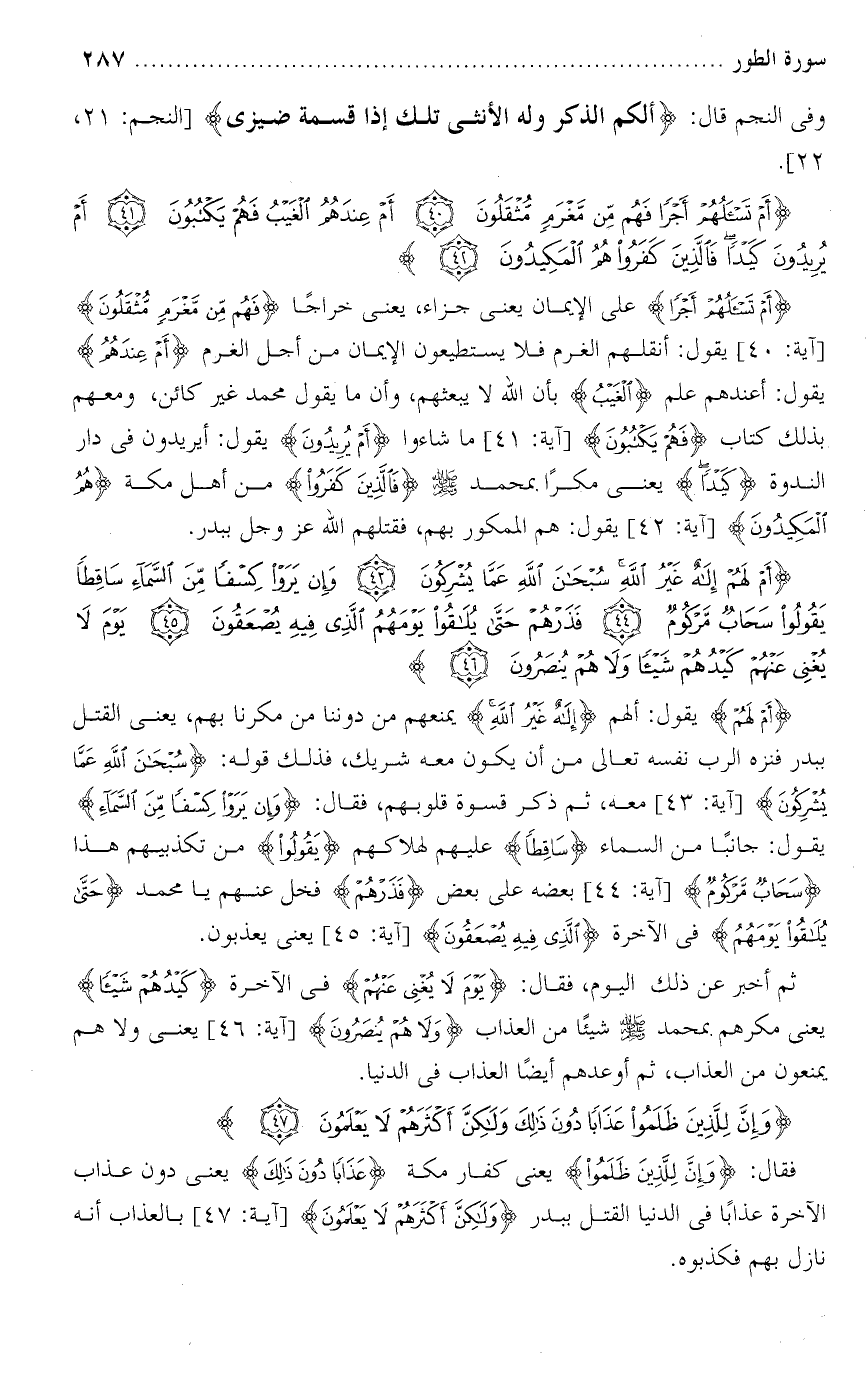 سورة الطور ................................................................ ٢٨٧
وفى النجم قال: ﴿ألكم الذكر وله الأنثى تلك إذا قسمة ضيزى﴾ [النجم: ٢١،
٢٢].
﴿أَمْ تَسْـَٔلُهُمْ أَجْرًا فَهُم مِّن مَّغْرَمٍ مُّثْقَلُونَ ٤٠ أَمْ عِندَهُمُ ٱلْغَيْبُ فَهُمْ يَكْتُبُونَ ٤١ أَمْ
يُرِيدُونَ كَيْدًا ۖ فَٱلَّذِينَ كَفَرُوا۟ هُمُ ٱلْمَكِيدُونَ ٤٢ ﴾
﴿أَمْ تَسْـَٔلُهُمْ أَجْرًا﴾ على الإيمان يعنى جزاء، يعنى خراجًا ﴿فَهُم مِّن مَّغْرَمٍ مُّثْقَلُونَ﴾
[آية: ٤٠] يقول: أنقلهم الغرم فلا يستطيعون الإيمان من أجل الغرم ﴿أَمْ عِندَهُمُ﴾
يقول: أعندهم علم ﴿ٱلْغَيْبُ﴾ بأن الله لا يبعثهم، وأن ما يقول محمد غير كائن، ومعهم
بذلك كتاب ﴿فَهُمْ يَكْتُبُونَ﴾ [آية: ٤١] ما شاءوا ﴿أَمْ يُرِيدُونَ﴾ يقول: أيريدون فى دار
الندوة ﴿كَيْدًا ۖ﴾ يعنى مكرًا بمحمد ﷺ ﴿فَٱلَّذِينَ كَفَرُوا۟﴾ من أهل مكة ﴿هُمُ
ٱلْمَكِيدُونَ﴾ [آية: ٤٢] يقول: هم الممكور بهم، فقتلهم الله عز وجل ببدر.
﴿أَمْ لَهُمْ إِلَـٰهٌ غَيْرُ ٱللَّهِ ۚ سُبْحَـٰنَ ٱللَّهِ عَمَّا يُشْرِكُونَ ٤٣ وَإِن يَرَوْا۟ كِسْفًا مِّنَ ٱلسَّمَآءِ سَاقِطًا
يَقُولُوا۟ سَحَابٌ مَّرْكُومٌ ٤٤ فَذَرْهُمْ حَتَّىٰ يُلَـٰقُوا۟ يَوْمَهُمُ ٱلَّذِى فِيهِ يُصْعَقُونَ ٤٥ يَوْمَ لَا
يُغْنِى عَنْهُمْ كَيْدُهُمْ شَيْـًٔا وَلَا هُمْ يُنصَرُونَ ٤٦ ﴾
﴿أَمْ لَهُمْ﴾ يقول: ألهم ﴿إِلَـٰهٌ غَيْرُ ٱللَّهِ ۚ﴾ يمنعهم من دوننا من مكرنا بهم، يعنى القتل
ببدر فنزه الرب نفسه تعالى من أن يكون معه شريك، فذلك قوله: ﴿سُبْحَـٰنَ ٱللَّهِ عَمَّا
يُشْرِكُونَ﴾ [آية: ٤٣] معه، ثم ذكر قسوة قلوبهم، فقال: ﴿وَإِن يَرَوْا۟ كِسْفًا مِّنَ ٱلسَّمَآءِ﴾
يقول: جانبًا من السماء ﴿سَاقِطًا﴾ عليهم لهلاكهم ﴿يَقُولُوا۟﴾ من تكذيبهم هذا
﴿سَحَابٌ مَّرْكُومٌ﴾ [آية: ٤٤] بعضه على بعض ﴿فَذَرْهُمْ﴾ فخل عنهم يا محمد ﴿حَتَّىٰ
يُلَـٰقُوا۟ يَوْمَهُمُ﴾ فى الآخرة ﴿ٱلَّذِى فِيهِ يُصْعَقُونَ﴾ [آية: ٤٥] يعنى يعذبون.
ثم أخبر عن ذلك اليوم، فقال: ﴿يَوْمَ لَا يُغْنِى عَنْهُمْ﴾ فى الآخرة ﴿كَيْدُهُمْ شَيْـًٔا﴾
يعنى مكرهم بمحمد ﷺ شيئًا من العذاب ﴿وَلَا هُمْ يُنصَرُونَ﴾ [آية: ٤٦] يعنى ولا هم
يمنعون من العذاب، ثم أوعدهم أيضًا العذاب فى الدنيا.
﴿وَإِنَّ لِلَّذِينَ ظَلَمُوا۟ عَذَابًا دُونَ ذَٰلِكَ وَلَـٰكِنَّ أَكْثَرَهُمْ لَا يَعْلَمُونَ ٤٧ ﴾
فقال: ﴿وَإِنَّ لِلَّذِينَ ظَلَمُوا۟﴾ يعنى كفار مكة ﴿عَذَابًا دُونَ ذَٰلِكَ﴾ يعنى دون عذاب
الآخرة عذابًا فى الدنيا القتل ببدر ﴿وَلَـٰكِنَّ أَكْثَرَهُمْ لَا يَعْلَمُونَ﴾ [آية: ٤٧] بالعذاب أنه
نازل بهم فكذبوه.